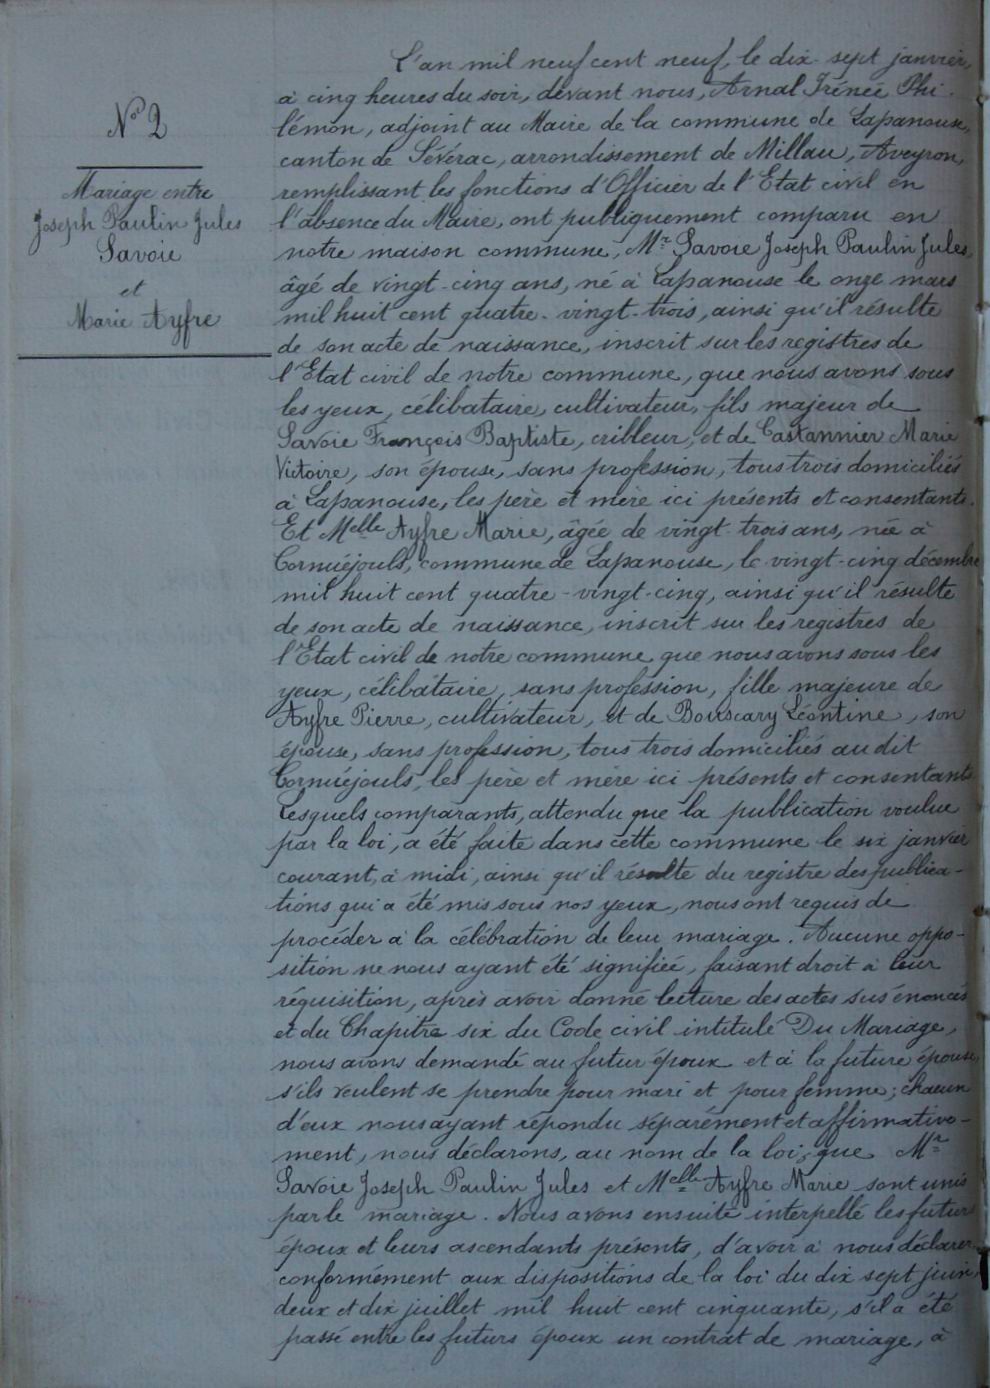 N° 2
Mariage entre
Joseph Paulin Jules
Savoie
et
Marie Ayfre
L'an mil neuf cent neuf, le dix-sept janvier,
à cinq heures du soir, devant nous, Arnal Irénée Phi-
lémon, adjoint au Maire de la commune de Lapanouse,
canton de Sévérac, arrondissement de Millau, Aveyron,
remplissant les fonctions d'Officier de l'Etat civil en
l'absence du Maire, ont publiquement comparu en
notre maison commune, Mr Savoie Joseph Paulin Jules,
âgé de vingt-cinq ans, né à Lapanouse le onze mars
mil huit cent quatre-vingt-trois, ainsi qu'il résulte
de son acte de naissance, inscrit sur les registres de
l'Etat civil de notre commune, que nous avons sous
les yeux, célibataire, cultivateur, fils majeur de
Savoie François Baptiste, cribleur, et de Castannier Marie
Victoire, son épouse, sans profession, tous trois domiciliés
à Lapanouse, les père et mère ici présents et consentants.
Et Melle Ayfre Marie, âgée de vingt-trois ans, née à
Cornuéjouls, commune de Lapanouse, le vingt-cinq décembre
mil huit cent quatre-vingt-cinq, ainsi qu'il résulte
de son acte de naissance, inscrit sur les registres de
l'Etat civil de notre commune que nous avons sous les
yeux, célibataire, sans profession, fille majeure de
Ayfre Pierre, cultivateur, et de Bouscary Léontine, son
épouse, sans profession, tous trois domiciliés au dit
Cornuéjouls, les père et mère ici présents et consentants
Lesquels comparants, attendu que la publication voulue
par la loi, a été faite dans cette commune le six janvier
courant, à midi, ainsi qu'il résulte du registre des publica-
tions qui a été mis sous nos yeux, nous ont requis de
procéder à la célébration de leur mariage. Aucune oppo-
sition ne nous ayant été signifiée, faisant droit à leur
réquisition, après avoir donné lecture des actes sus énoncés
et du Chapitre six du Code civil intitulé Du Mariage,
nous avons demandé au futur époux et à la future épouse,
s'ils veulent se prendre pour mari et pour femme; chacun
d'eux nous ayant répondu séparément et affirmative-
ment, nous déclarons, au nom de la loi, que Mr
Savoie Joseph Paulin Jules et Melle Ayfre Marie sont unis
par le mariage. Nous avons ensuite interpellé les futurs
époux et leurs ascendants présents, d'avoir à nous déclarer,
conformément aux dispositions de la loi du dix sept juin,
deux et dix juillet mil huit cent cinquante, s'il a été
passé entre les futurs époux un contrat de mariage, à